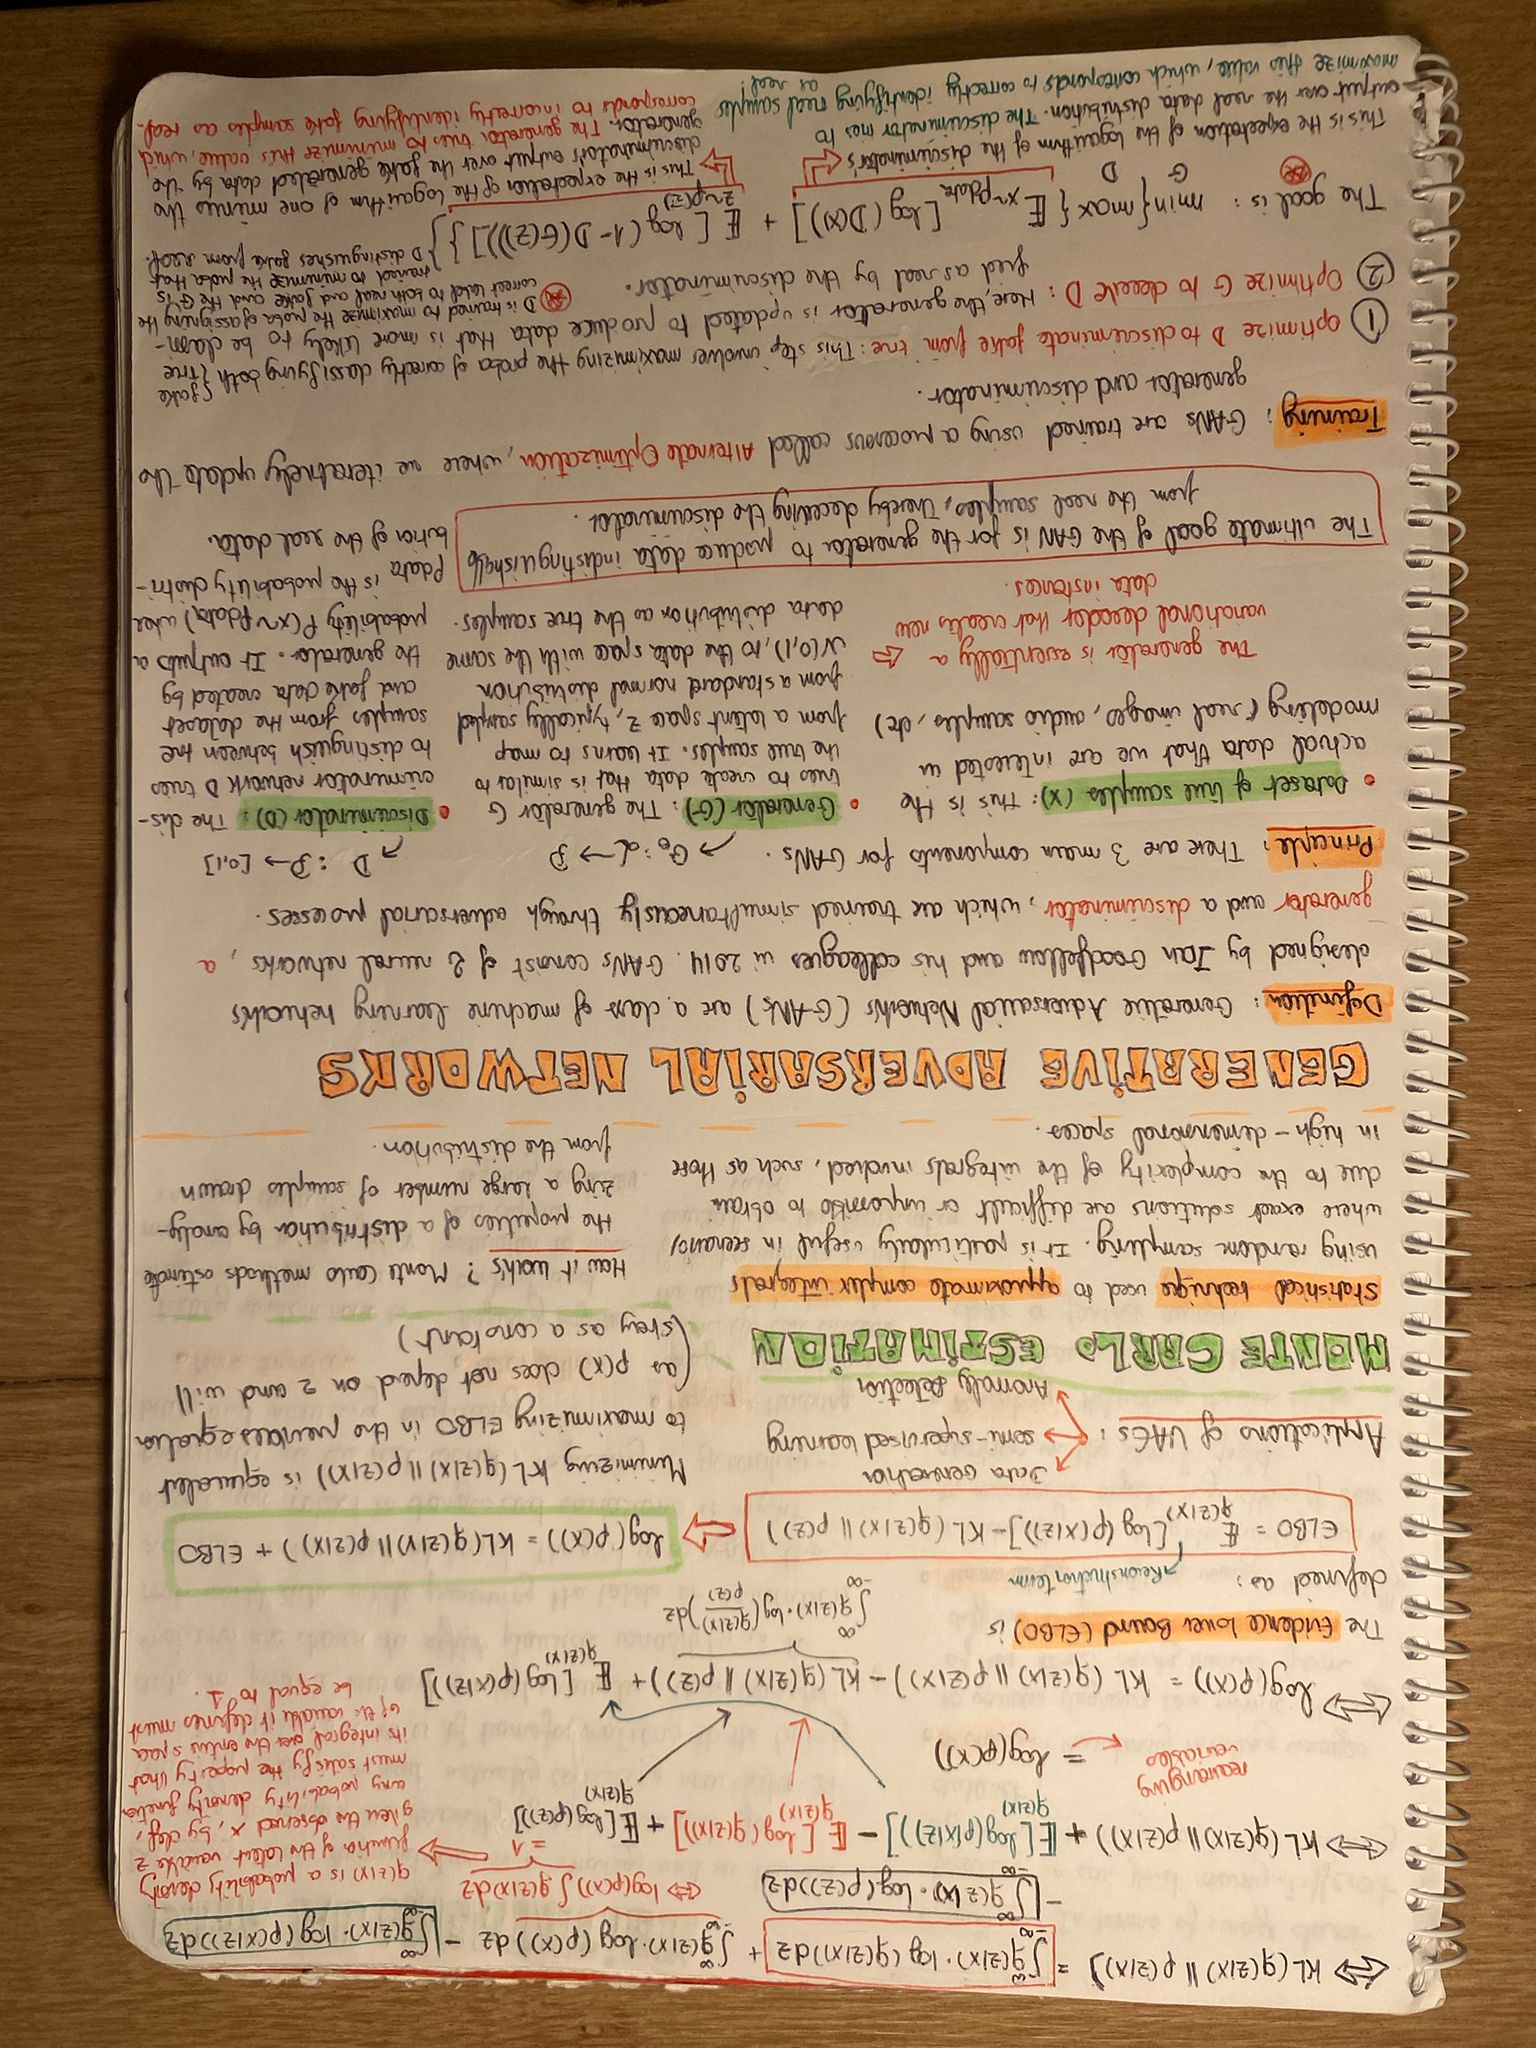 ⟺ KL(q(z|x) || p(z|x)) = ∫_{-∞}^{∞} q(z|x) · log(q(z|x)) dz + ∫_{-∞}^{∞} q(z|x) · log(p(x)) dz - ∫_{-∞}^{∞} q(z|x) · log(p(x|z)) dz
- ∫_{-∞}^{∞} q(z|x) · log(p(z)) dz
⟺ log(p(x)) ∫ q(z|x) dz
= 1
q(z|x) is a probability density
function of the latent variable z
given the observed x, by def,
any probability density function
must satisfy the property that
its integral over the entire space
of the variable it defines must
be equal to 1.
⟺ KL(q(z|x) || p(z|x)) + 𝔼_{q(z|x)}[log(p(x|z))] - 𝔼_{q(z|x)}[log(q(z|x))] + 𝔼_{q(z|x)}[log(p(z))]
= log(p(x))
rearranging
variables
⟺ log(p(x)) = KL(q(z|x) || p(z|x)) - KL(q(z|x) || p(z)) + 𝔼_{q(z|x)}[log(p(x|z))]
∫_{-∞}^{∞} q(z|x) · log(q(z|x)/p(z)) dz
The Evidence Lower Bound (ELBO) is
defined as:
Reconstruction term
ELBO = 𝔼_{q(z|x)}[log(p(x|z))] - KL(q(z|x) || p(z))
⇒ log(p(x)) = KL(q(z|x) || p(z|x)) + ELBO
Minimizing KL(q(z|x) || p(z|x)) is equivalent
to maximizing ELBO in the previous equation
(as p(x) does not depend on z and will
stay as a constant)
Applications of VAEs:
Data Generation
semi-supervised learning
Anomaly Detection
MONTE CARLO ESTIMATION
Statistical technique used to approximate complex integrals
using random sampling. It is particularly useful in scenarios
where exact solutions are difficult or impossible to obtain
due to the complexity of the integrals involved, such as those
in high-dimensional spaces.
How it works? Monte Carlo methods estimate
the properties of a distribution by analy-
zing a large number of samples drawn
from the distribution.
GENERATIVE ADVERSARIAL NETWORKS
Definition: Generative Adversarial Networks (GANs) are a class of machine learning networks
designed by Ian Goodfellow and his colleagues in 2014. GANs consist of 2 neural networks, a
generator and a discriminator, which are trained simultaneously through adversarial processes.
Principle: There are 3 main components for GANs.
• Dataset of true samples (X): This is the
actual data that we are interested in
modeling (real images, audio samples, etc)
→ G_θ : 𝓛 → 𝒫
• Generator (G): The generator G
tries to create data that is similar to
the true samples. It learns to map
from a latent space Z, typically sampled
from a standard normal distribution
N(0,1), to the data space with the same
data distribution as the true samples.
The generator is eventually a
variational decoder that creates new
data instances.
→ D : 𝒫 → [0,1]
• Discriminator (D): The dis-
criminator network D tries
to distinguish between the
samples from the dataset
and fake data created by
the generator. It outputs a
probability P(x~Pdata) where
Pdata is the probability distri-
bution of the real data.
The ultimate goal of the GAN is for the generator to produce data indistinguishable
from the real samples, thereby deceiving the discriminator.
Training: GANs are trained using a processus called Alternate Optimization, where we iteratively update the
generator and discriminator.
① Optimize D to discriminate fake from true: This step involves maximizing the proba of correctly classifying both { fake
true
② Optimize G to deceive D: Here, the generator is updated to produce data that is more likely to be classi-
fied as real by the discriminator.
D is trained to maximize the proba of assigning the
correct label to both real and fake and the G is
trained to minimize the proba that
D distinguishes fake from real.
The goal is: min_G { max_D { 𝔼_{x~Pdata}[log(D(x))] + 𝔼_{z~p(z)}[log(1-D(G(z)))] } }
This is the expectation of the logarithm of the discriminator's
output over the real data distribution. The discriminator tries to
maximize this value, which corresponds to correctly identifying real samples
as real!
This is the expectation of the logarithm of one minus the
discriminator's output over the fake generated data by the
generator. The generator tries to minimize this value, which
corresponds to incorrectly identifying fake samples as real.